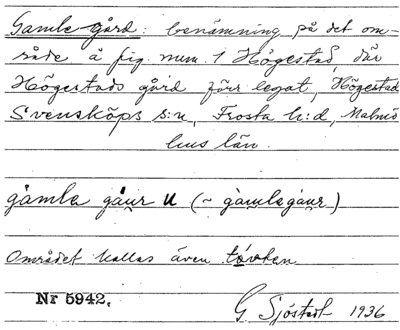 Gamle gård: benämning på det om-
råde å fig. num. 1 Högestad, där
Högestads gård förr legat, Högestad
Svensköps s:n, Frosta h:d, Malmö
hus län.
gàmla gåur u (~ gàmlagåur)
Området kallas även tóvten
Nr 5942.
G Sjöstedt 1936